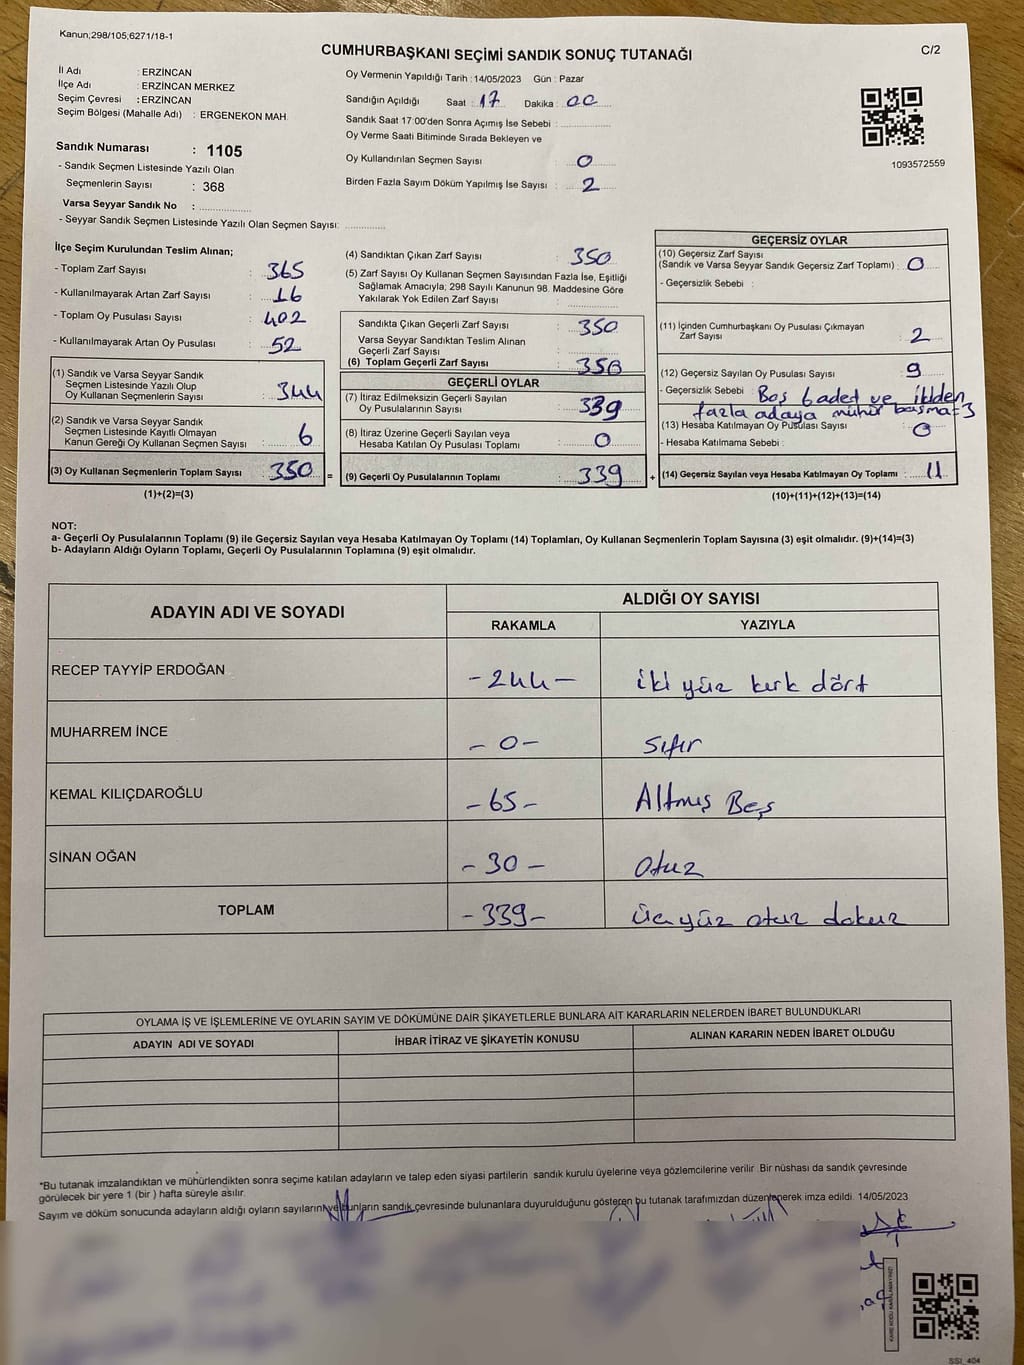 Kanun;298/105;6271/18-1
C/2
CUMHURBAŞKANI SEÇİMİ SANDIK SONUÇ TUTANAĞI
İl Adı : ERZİNCAN
İlçe Adı : ERZİNCAN MERKEZ
Seçim Çevresi : ERZİNCAN
Seçim Bölgesi (Mahalle Adı) : ERGENEKON MAH.
Sandık Numarası : 1105
- Sandık Seçmen Listesinde Yazılı Olan
Seçmenlerin Sayısı : 368
Varsa Seyyar Sandık No :
- Seyyar Sandık Seçmen Listesinde Yazılı Olan Seçmen Sayısı:
Oy Vermenin Yapıldığı Tarih : 14/05/2023 Gün : Pazar
Sandığın Açıldığı Saat : 17 Dakika : 00
Sandık Saat 17:00'den Sonra Açımış İse Sebebi :
Oy Verme Saati Bitiminde Sırada Bekleyen ve
Oy Kullandırılan Seçmen Sayısı : 0
Birden Fazla Sayım Döküm Yapılmış İse Sayısı : 2
1093572559
İlçe Seçim Kurulundan Teslim Alınan;
- Toplam Zarf Sayısı : 365
- Kullanılmayarak Artan Zarf Sayısı : 16
- Toplam Oy Pusulası Sayısı : 402
- Kullanılmayarak Artan Oy Pusulası : 52
(1) Sandık ve Varsa Seyyar Sandık
Seçmen Listesinde Yazılı Olup
Oy Kullanan Seçmenlerin Sayısı : 344
(2) Sandık ve Varsa Seyyar Sandık
Seçmen Listesinde Kayıtlı Olmayan
Kanun Gereği Oy Kullanan Seçmen Sayısı : 6
(3) Oy Kullanan Seçmenlerin Toplam Sayısı : 350 =
(1)+(2)=(3)
(4) Sandıktan Çıkan Zarf Sayısı : 350
(5) Zarf Sayısı Oy Kullanan Seçmen Sayısından Fazla İse, Eşitliği
Sağlamak Amacıyla; 298 Sayılı Kanunun 98. Maddesine Göre
Yakılarak Yok Edilen Zarf Sayısı :
Sandıkta Çıkan Geçerli Zarf Sayısı : 350
Varsa Seyyar Sandıktan Teslim Alınan
Geçerli Zarf Sayısı :
(6) Toplam Geçerli Zarf Sayısı : 350
GEÇERLİ OYLAR
(7) İtiraz Edilmeksizin Geçerli Sayılan
Oy Pusulalarının Sayısı : 339
(8) İtiraz Üzerine Geçerli Sayılan veya
Hesaba Katılan Oy Pusulası Toplamı : 0
(9) Geçerli Oy Pusulalarının Toplamı : 339 +
GEÇERSİZ OYLAR
(10) Geçersiz Zarf Sayısı
(Sandık ve Varsa Seyyar Sandık Geçersiz Zarf Toplamı) : 0
- Geçersizlik Sebebi :
(11) İçinden Cumhurbaşkanı Oy Pusulası Çıkmayan
Zarf Sayısı : 2
(12) Geçersiz Sayılan Oy Pusulası Sayısı : 9
- Geçersizlik Sebebi : Boş 6 adet ve ikiden
fazla adaya mühür basma=3
(13) Hesaba Katılmayan Oy Pusulası Sayısı : 0
- Hesaba Katılmama Sebebi :
(14) Geçersiz Sayılan veya Hesaba Katılmayan Oy Toplamı : 11
(10)+(11)+(12)+(13)=(14)
NOT:
a- Geçerli Oy Pusulalarının Toplamı (9) ile Geçersiz Sayılan veya Hesaba Katılmayan Oy Toplamı (14) Toplamları, Oy Kullanan Seçmenlerin Toplam Sayısına (3) eşit olmalıdır. (9)+(14)=(3)
b- Adayların Aldığı Oyların Toplamı, Geçerli Oy Pusulalarının Toplamına (9) eşit olmalıdır.
ADAYIN ADI VE SOYADI
ALDIĞI OY SAYISI
RAKAMLA YAZIYLA
RECEP TAYYİP ERDOĞAN -244- iki yüz kırk dört
MUHARREM İNCE -0- sıfır
KEMAL KILIÇDAROĞLU -65- Altmış Beş
SİNAN OĞAN -30- Otuz
TOPLAM -339- üçyüz otuz dokuz
OYLAMA İŞ VE İŞLEMLERİNE VE OYLARIN SAYIM VE DÖKÜMÜNE DAİR ŞİKAYETLERLE BUNLARA AİT KARARLARIN NELERDEN İBARET BULUNDUKLARI
ADAYIN ADI VE SOYADI İHBAR İTİRAZ VE ŞİKAYETİN KONUSU ALINAN KARARIN NEDEN İBARET OLDUĞU
*Bu tutanak imzalandıktan ve mühürlendikten sonra seçime katılan adayların ve talep eden siyasi partilerin sandık kurulu üyelerine veya gözlemcilerine verilir. Bir nüshası da sandık çevresinde
görülecek bir yere 1 (bir ) hafta süreyle asılır.
Sayım ve döküm sonucunda adayların aldığı oyların sayılarını ve bunların sandık çevresinde bulunanlara duyurulduğunu gösteren bu tutanak tarafımızdan düzenlenerek imza edildi. 14/05/2023
KARE KODU KARALAMAYINIZ!
SSI_404